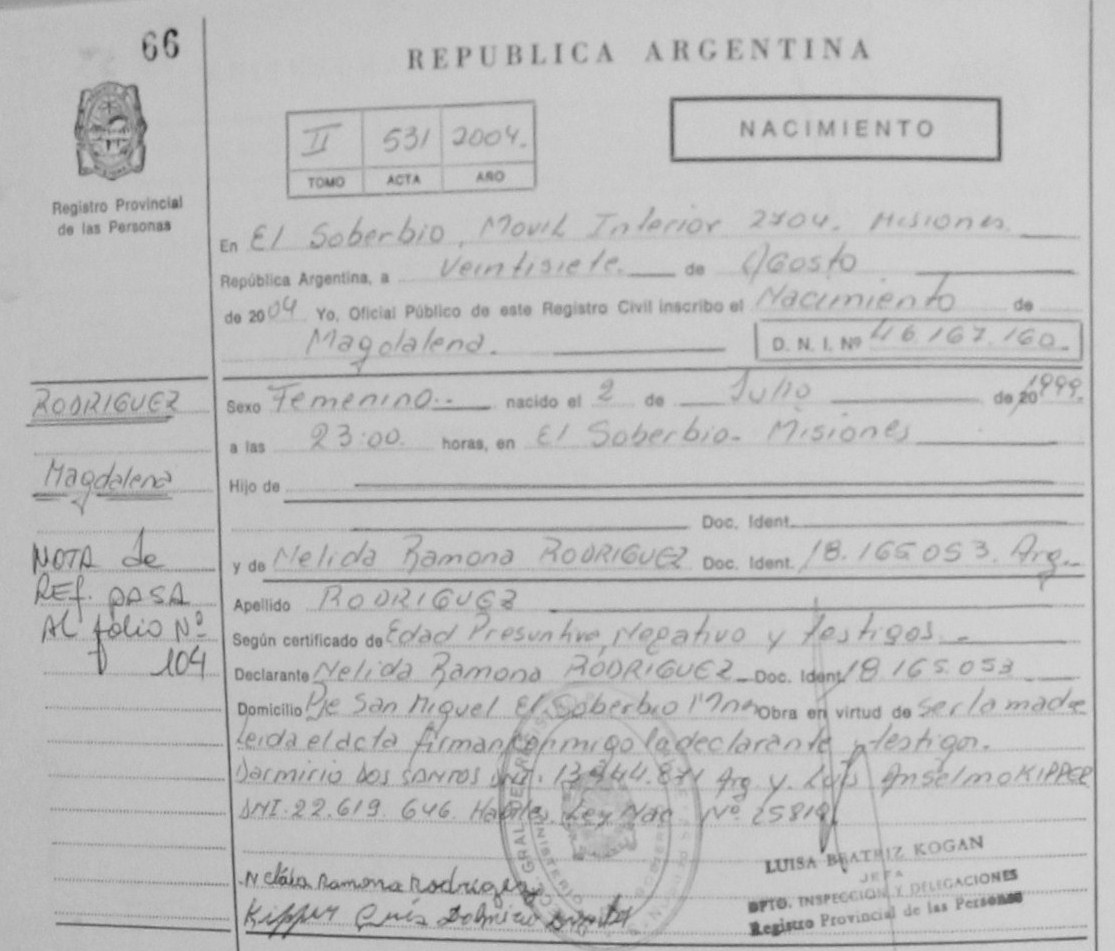 66
REPUBLICA ARGENTINA
II 531 2004.
TOMO ACTA AÑO
NACIMIENTO
Registro Provincial
de las Personas
En El Soberbio, Movil Interior 2704. Misiones
República Argentina, a Veintisiete de Agosto
de 2004 Yo, Oficial Público de este Registro Civil inscribo el Nacimiento de
Magdalena. D. N. I. Nº 46.167.160.
RODRIGUEZ
Magdalena
NOTA de
REF. PASA
AL folio Nº
104
Sexo Femenino.. nacido el 2 de Julio de 20 1999.
a las 23:00. horas, en El Soberbio. Misiones
Hijo de
Doc. Ident.
y de Nelida Ramona RODRIGUEZ Doc. Ident. 18.165.053. Arg.
Apellido RODRIGUEZ
Según certificado de Edad Presuntiva, Negativo y testigos.
Declarante Nelida Ramona RODRIGUEZ Doc. Ident. 18.165.053
Domicilio San Miguel El Soberbio Obra en virtud de ser la madre
Leida el acta firman conmigo la declarante y testigos.
Darmicio DOS SANTOS Arg y. Luis Anselmo KIPPER
DNI. 22.619.646. Habiles Ley Nac Nº 25819
Nelida Ramona Rodriguez
Kipper Luis
LUISA BEATRIZ KOGAN
JEFA
DPTO. INSPECCIÓN Y DELEGACIONES
Registro Provincial de las Personas